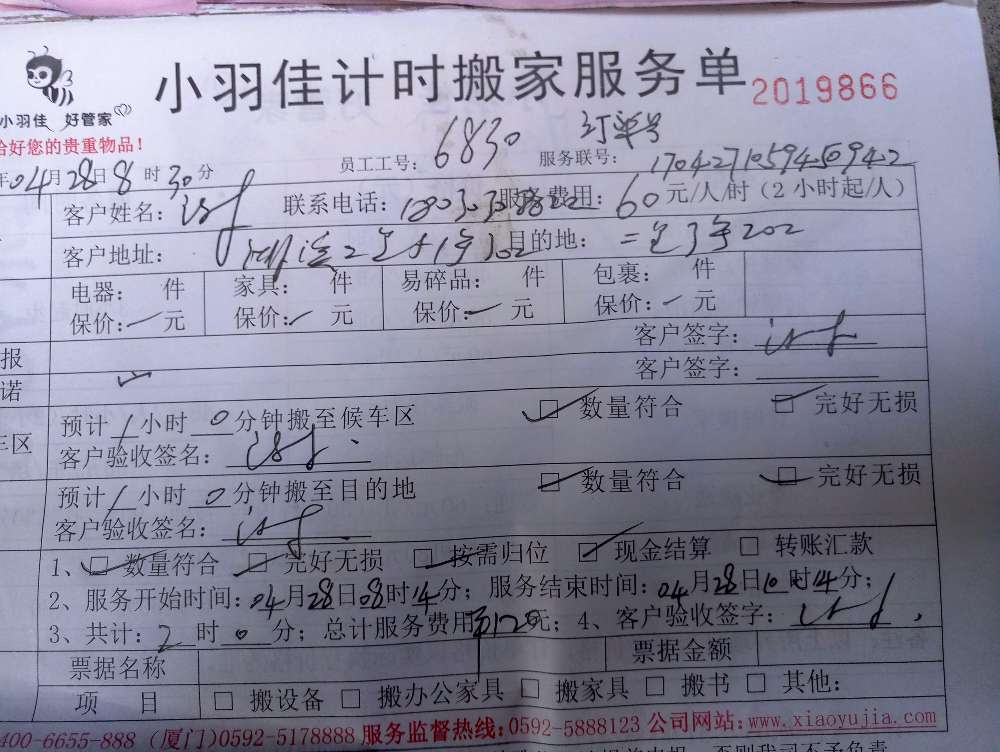 小羽佳计时搬家服务单 2019866
小羽佳 好管家
给好您的贵重物品！
订单号
员工工号：6830 服务联号：17042710594509942
年04月28日8时30分
客户姓名： 联系电话： 服务费用：60元/人/时（2小时起/人）
客户地址： 目的地： 202
电器： 件 家具： 件 易碎品： 件 包裹： 件
保价：一元 保价：一元 保价：一元 保价：一元
报 客户签字：
诺 客户签字：
车区 预计1小时0分钟搬至候车区 ☑ 数量符合 ☑ 完好无损
客户验收签名：
预计1小时0分钟搬至目的地 ☑ 数量符合 ☑ 完好无损
客户验收签名：
1、☑ 数量符合 ☑ 完好无损 ☑ 按需归位 ☑ 现金结算 □ 转账汇款
2、服务开始时间：04月28日08时14分；服务结束时间：04月28日10时14分；
3、共计：2时0分；总计服务费用120元；4、客户验收签字：
票据名称 票据金额
项 目 □ 搬设备 □ 搬办公家具 □ 搬家具 □ 搬书 □ 其他：
400-6655-888 (厦门)0592-5178888 服务监督热线：0592-5888123 公司网站：www.xiaoyujia.com